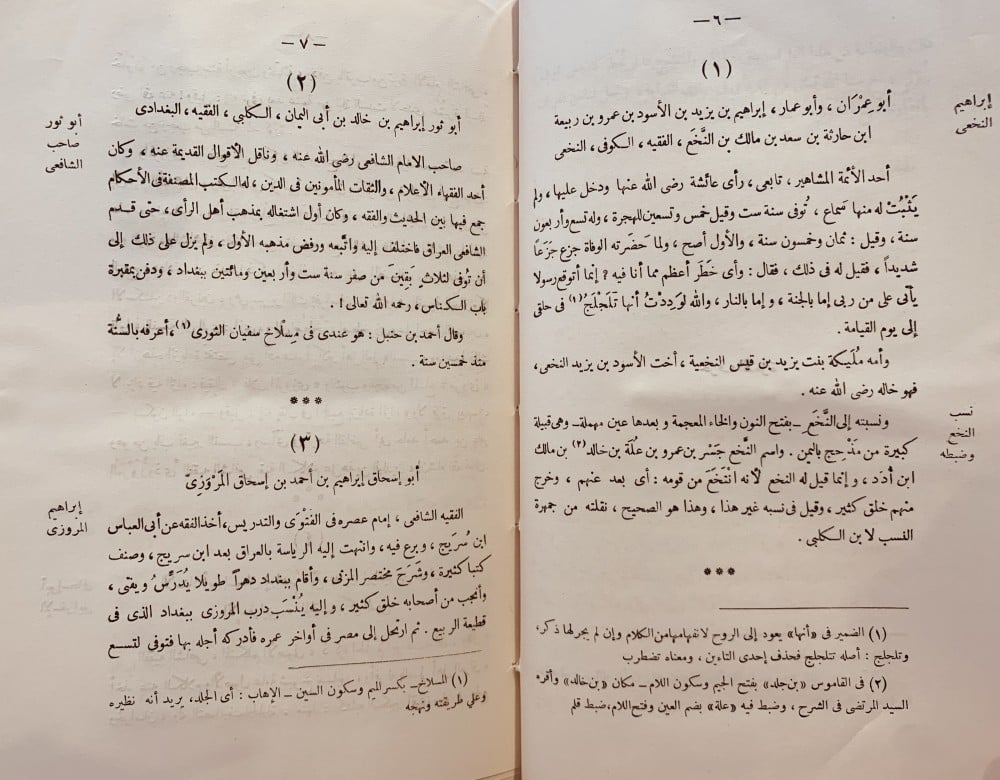 — ٦ —
(١)
إبراهيم
النخعى
أبو عِمْرَان ، وأبو عمار ، إبراهيم بن يزيد بن الأسود بن عمرو بن ربيعة
ابن حارثة بن سعد بن مالك بن النَّخَع ، الفقيه ، الكوفى ، النخعى
أحد الأئمة المشاهير ، تابعى ، رأى عائشة رضى الله عنها ودخل عليها ، ولم
يَثْبُتْ له منها سَماع ، تُوفى سنة ست وقيل خمس وتسعين للهجرة ، وله تسع وأربعون
سنة ، وقيل : ثمان وخمسون سنة ، والأول أصح ، ولما حَضَرته الوفاة جزع جَزَعاً
شديداً ، فقيل له فى ذلك ، فقال : وأى خَطَر أعظم مما أنا فيه ? إنما أتوقع رسولا
يأتى على من ربى إما بالجنة ، وإما بالنار ، والله لوَدِدْتُ أنها تَلَجْلَجُ (١) فى حلقى
إلى يوم القيامة .
وأمه مُلَيكة بنت يزيد بن قيس النخعية ، أخت الأسود بن يزيد النخعى ،
فهو خاله رضى الله عنه .
نسب
النخع
وضبطه
ونسبته إلى النَّخَع ــ بفتح النون والخاء المعجمة وبعدها عين مهملة ــ وهى قبيلة
كبيرة من مَذْحِج باليمن . واسم النَّخع جَسْر بن عمرو بن عُلَة بن خالد (٢) بن مالك
ابن أُدَد ، وإنما قيل له النخع لأنه انْتَخَعَ من قومه : أى بعد عنهم ، وخرج
منهم خلق كثير ، وقيل فى نسبه غير هذا ، وهذا هو الصحيح ، نقلته من جمهرة
النسب لابن الكلبى .
***
(١) الضمير فى «أنها» يعود إلى الروح لانفهامها من الكلام وإن لم يجر لها ذكر ،
وتلجلج : أصله تتلجلج فحذف إحدى التاءين ، ومعناه تضطرب
(٢) فى القاموس «بن جلد» بفتح الجيم وسكون اللام ــ مكان «بن خالد» وأقره
السيد المرتضى فى الشرح ، وضبط فيه «علة» بضم العين وفتح اللام ، ضبط قلم
— ٧ —
(٢)
أبو ثور
صاحب
الشافعى
أبو ثور إبراهيم بن خالد بن أبى اليمان ، الكلبى ، الفقيه ، البغدادى
صاحب الامام الشافعى رضى الله عنه ، وناقل الأقوال القديمة عنه ، وكان
أحد الفقهاء الأعلام ، والثقات المأمونين فى الدين ، له الكتب المصنفة فى الأحكام
جمع فيها بين الحديث والفقه ، وكان أول اشتغاله بمذهب أهل الرأى ، حتى قدم
الشافعى العراق فاختلف إليه واتَّبعه ورفض مذهبه الأول ، ولم يزل على ذلك إلى
أن تُوفى لثلاث بَقِين من صفر سنة ست وأربعين ومائتين ببغداد ، ودفن بمقبرة
باب الكناس ، رحمه الله تعالى ! .
وقال أحمد بن حنبل : هو عندى فى مِسْلاخ سفيان الثورى (١) ، أعرفه بالسُّنَّة
منذ خمسين سنة .
***
(٣)
إبراهيم
المروزى
أبو إسحاق إبراهيم بن أحمد بن إسحاق المَرْوَزِىّ
الفقيه الشافعى ، إمام عصره فى الفَتْوَى والتدريس ، أخذ الفقه عن أبى العباس
ابن سُرَيج ، وبرع فيه ، وانتهت إليه الرياسة بالعراق بعد ابن سريج ، وصنف
كتبا كثيرة ، وشَرَحَ مختصر المزنى ، وأقام ببغداد دهراً طويلا يُدَرِّسُ ويفتى ،
وأنجب من أصحابه خلق كثير ، وإليه يُنْسَب درب المروزى ببغداد الذى فى
قطيعة الربيع . ثم ارتحل إلى مصر فى أواخر عمره فأدركه أجله بها فتوفى لتسع
(١) المسلاخ ــ بكسر الميم وسكون السين ــ الإهاب : أى الجلد ، يريد أنه نظيره
وعلى طريقته ونهجه